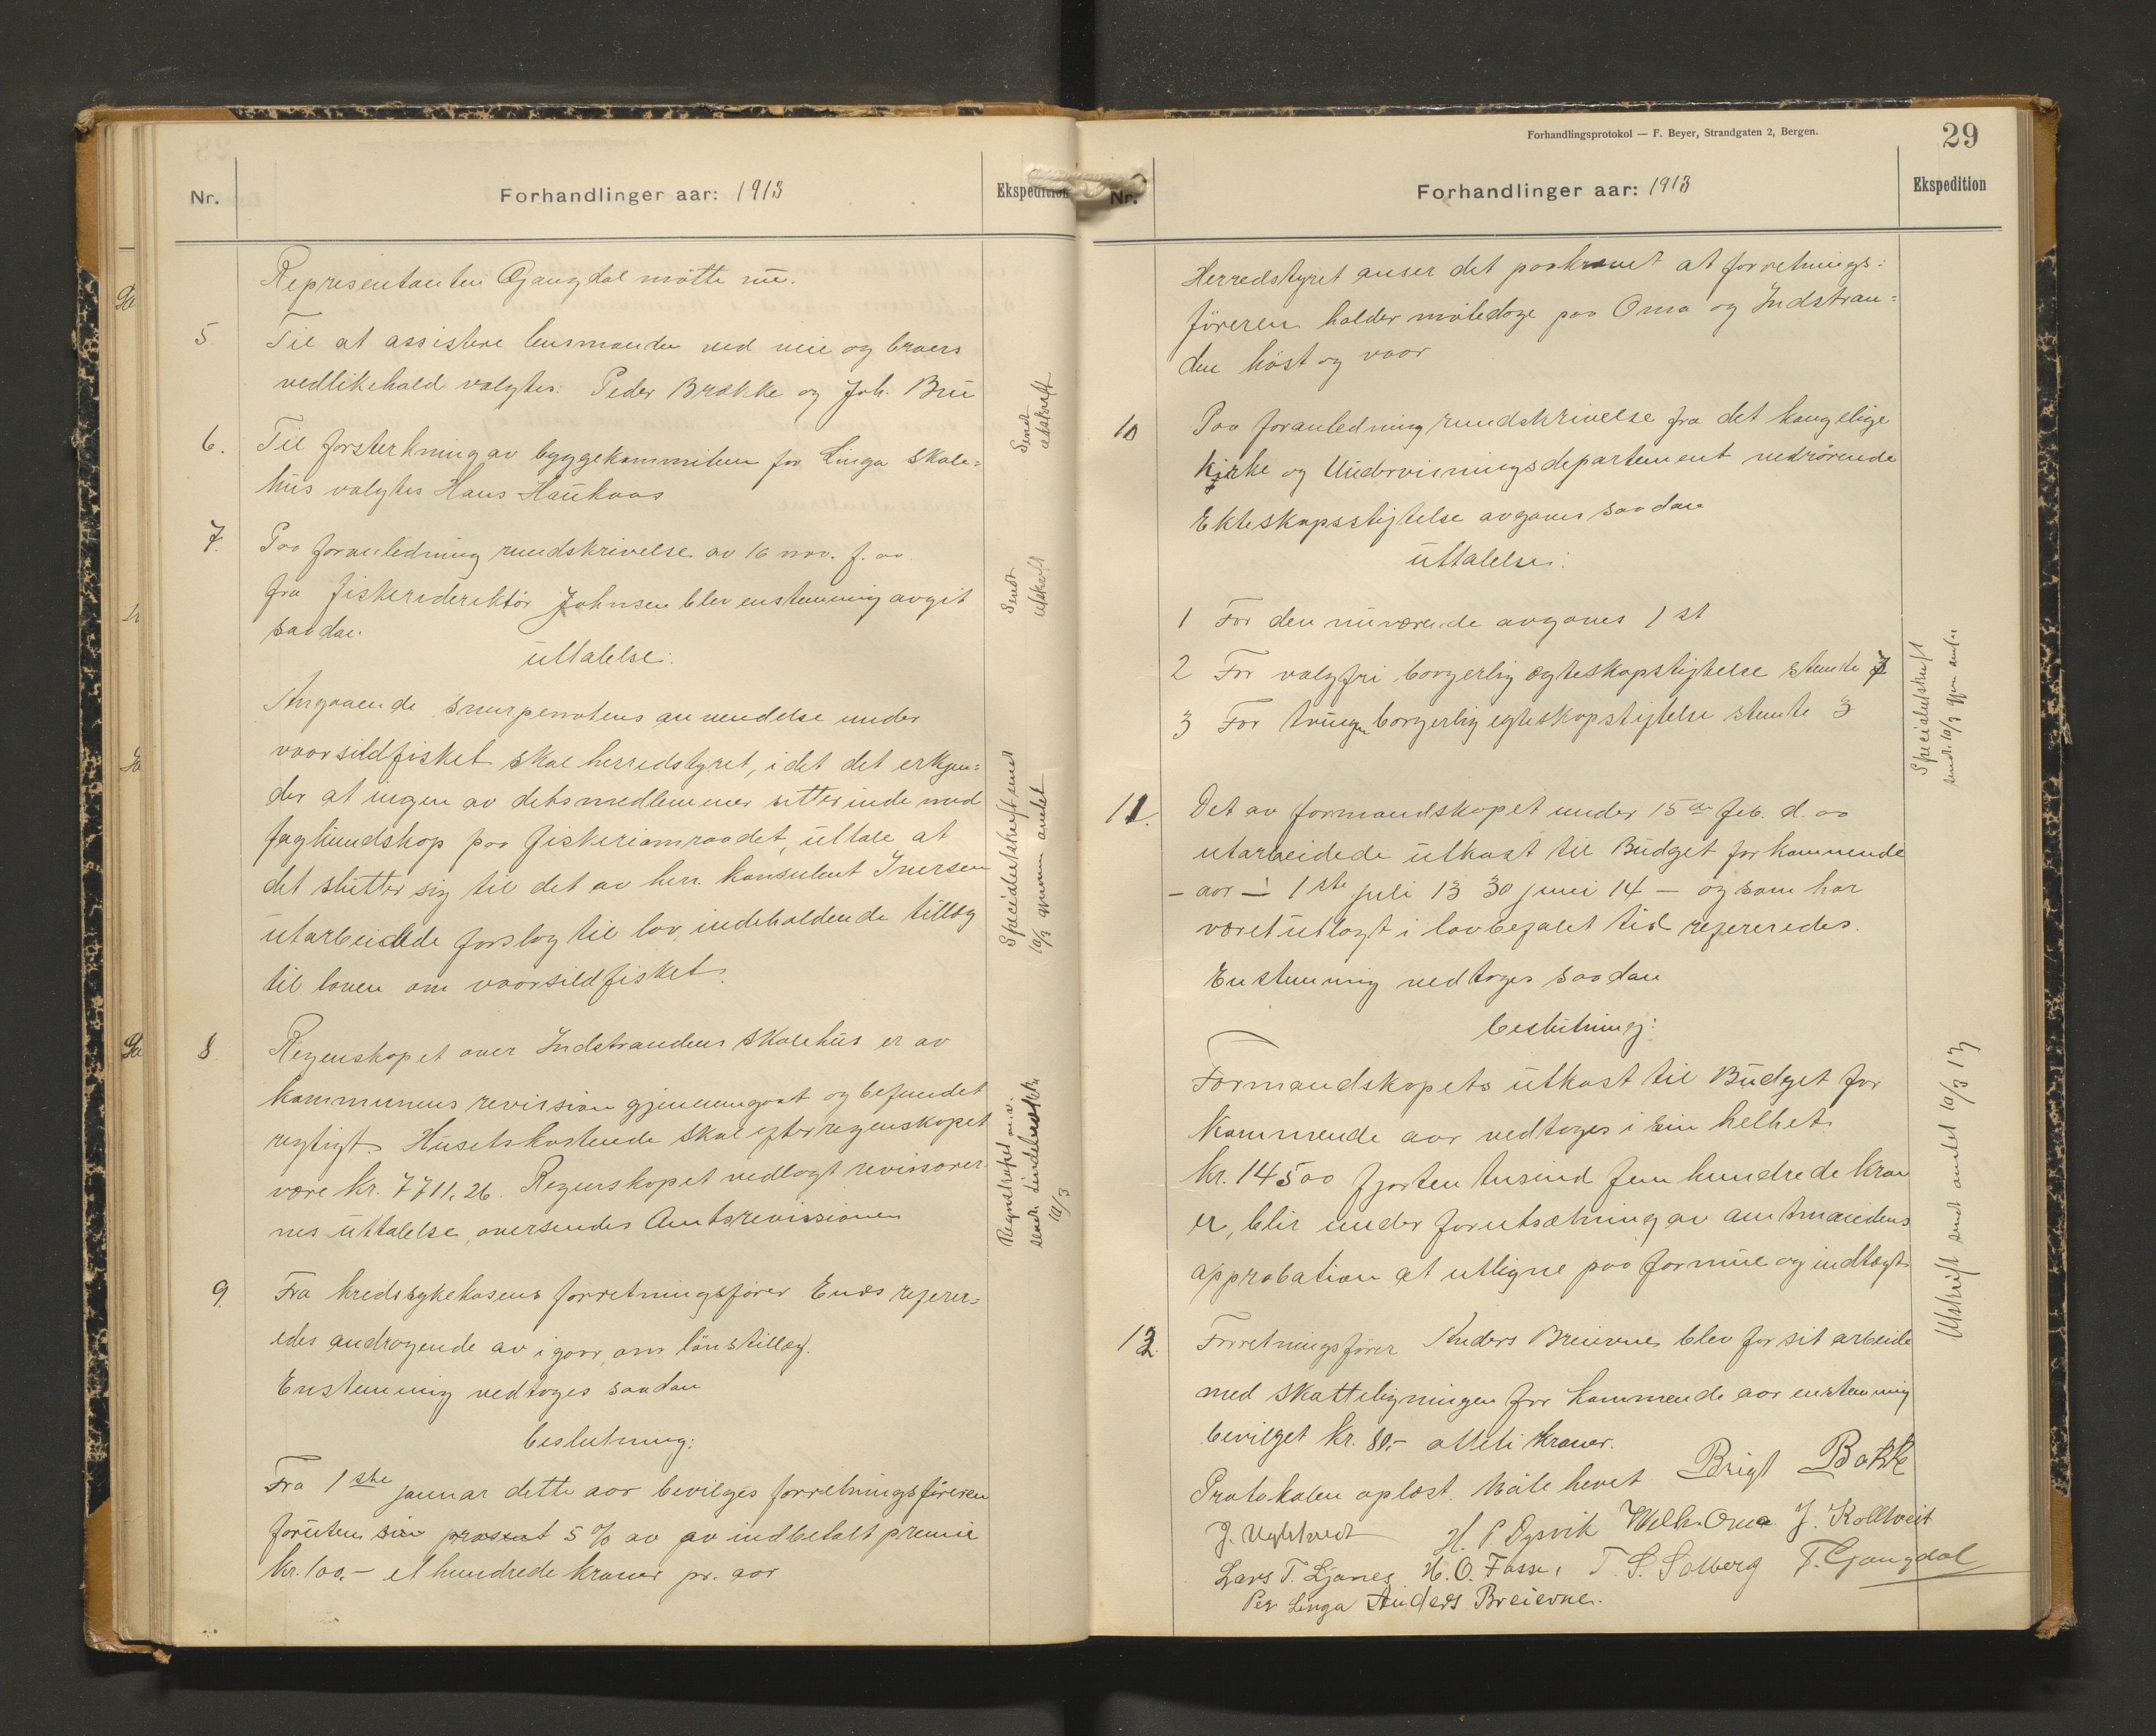 Nr.
Forhandlinger aar: 1913
Ekspedition
Representanten Gjangdal mötte nu.
5. Til at assistere lensmanden ved veie og broers
vedlikehald valgtes: Peder Brække og Joh. Bru
Sendt utskrift
6. Til forsterkning av byggekommiteen for Linga skole=
hus valgtes Hans Haukaas
7. Paa foranledning rundskrivelse av 16 nov. f. aa.
fra fiskeridirektör Johnsen blev enstemmig avgit
saadan
Sendt utskrift
uttalelse:
Angaaende snurpenotens anvendelse under
vaarsildfisket skal herredstyret, idet det erkjen=
der at ingen av dets medlemmer sitter inde med
fagkundskap paa fiskeriomraadet, uttale at
det slutter sig til det av herr konsulent Iversen
utarbeidede forslag til lov, indeholdende tillæg
til loven om vaarsildfisket.
Specialutskrift sendt
10/3 gjennem amtet
8. Regenskapet over Indstrandens skolehus er av
kommunens revision gjennemgaat og befundet
regtigt. Husets kostende skal efter regenskapet
være kr. 7711,26. Regenskapet vedlagt revisorer=
nes uttalelse, oversendes Amtsrevisionen
Regnskapet m.v.
sendt
10/3
9. Fra kredssykekasens forretningsfører Enes referer=
edes andragende av igaar om lönstillæg.
Enstemmig vedtoges saadan
beslutning:
Fra 1ste januar dette aar bevilges forretningsføreren
foruten sin 5 % av av indbetalt premie
kr. 100,- et hundrede kroner pr. aar
Forhandlingsprotokol — F. Beyer, Strandgaten 2, Bergen.
29
Nr.
Forhandlinger aar: 1913
Ekspedition
Herredstyret anser det paakrævet at forretnings=
føreren holder mötedage paa Oma og Indstran=
den höst og vaar
10 Paa foranledning rundskrivelse fra det kongelige
Kirke og Undervisningsdepartement vedrörende
Ekteskapsstiftelse avgaves saadan
uttalelse:
1 For den nuværende avgaves 1 st
2 For valgfri borgerlig ægteskapstiftelse stemte
3 For tvungen borgerlig egteskapstiftelse stemte 3
Specialutskrift
sendt 10/3 gjen amtet
11. Det av formandskapet under 15de feb. d. aa
utarbeidede utkast til Budget for kommende
- aar - 1ste juli 13 30 juni 14 - og som har
været utlagt i lovbefalet tid refereredes.
Enstemmig vedtoges saadan
beslutning:
Formandskapets utkast til Budget for
kommende aar vedtoges i sin helhet.
Kr. 14500 fjorten tusind fem hundrede kron
er, blir under forutsætning av amtmandens
approbation at utligne paa formue og indtægt
Utskrift sendt amtet 10/3 13
12. Forretningsfører Anders Breievne blev for sit arbeide
med skatteligningen for kommende aar enstemmig
bevilget kr. 80,- otteti kroner.
Protokolen oplæst. Möte hevet Brigt Bakke
H. P Dysvik Welh. Oma J. Kolltveit
Lars T. Ljones H. O. Fosse, T. S. Solberg T. Gjangdal
Per Linga Anders Breievne.